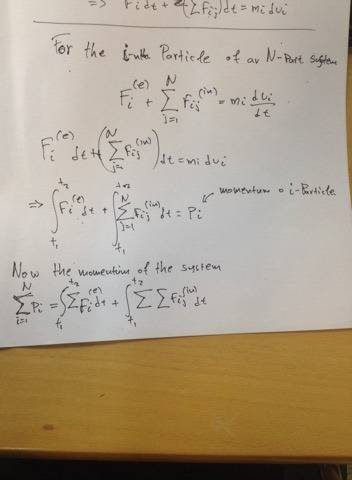 => Fidt + (ΣFij)dt = mi dvi
For the i-nth Particle of an N-Part system
Fi^(e) + Σ_{j=1}^{N} Fij^(in) = mi dvi/dt
Fi^(e) dt + (Σ_{j=1}^{N} Fij^(in)) dt = mi dvi
=> ∫_{t1}^{t2} Fi^(e) dt + ∫_{t1}^{t2} Σ_{j=1}^{N} Fij^(in) dt = Pi momentum o i-Particle
Now the momentum of the system
Σ_{i=1}^{N} Pi = ∫_{t1}^{t2} Σ Fi^(e) dt + ∫_{t1}^{t2} Σ Σ Fij^(in) dt